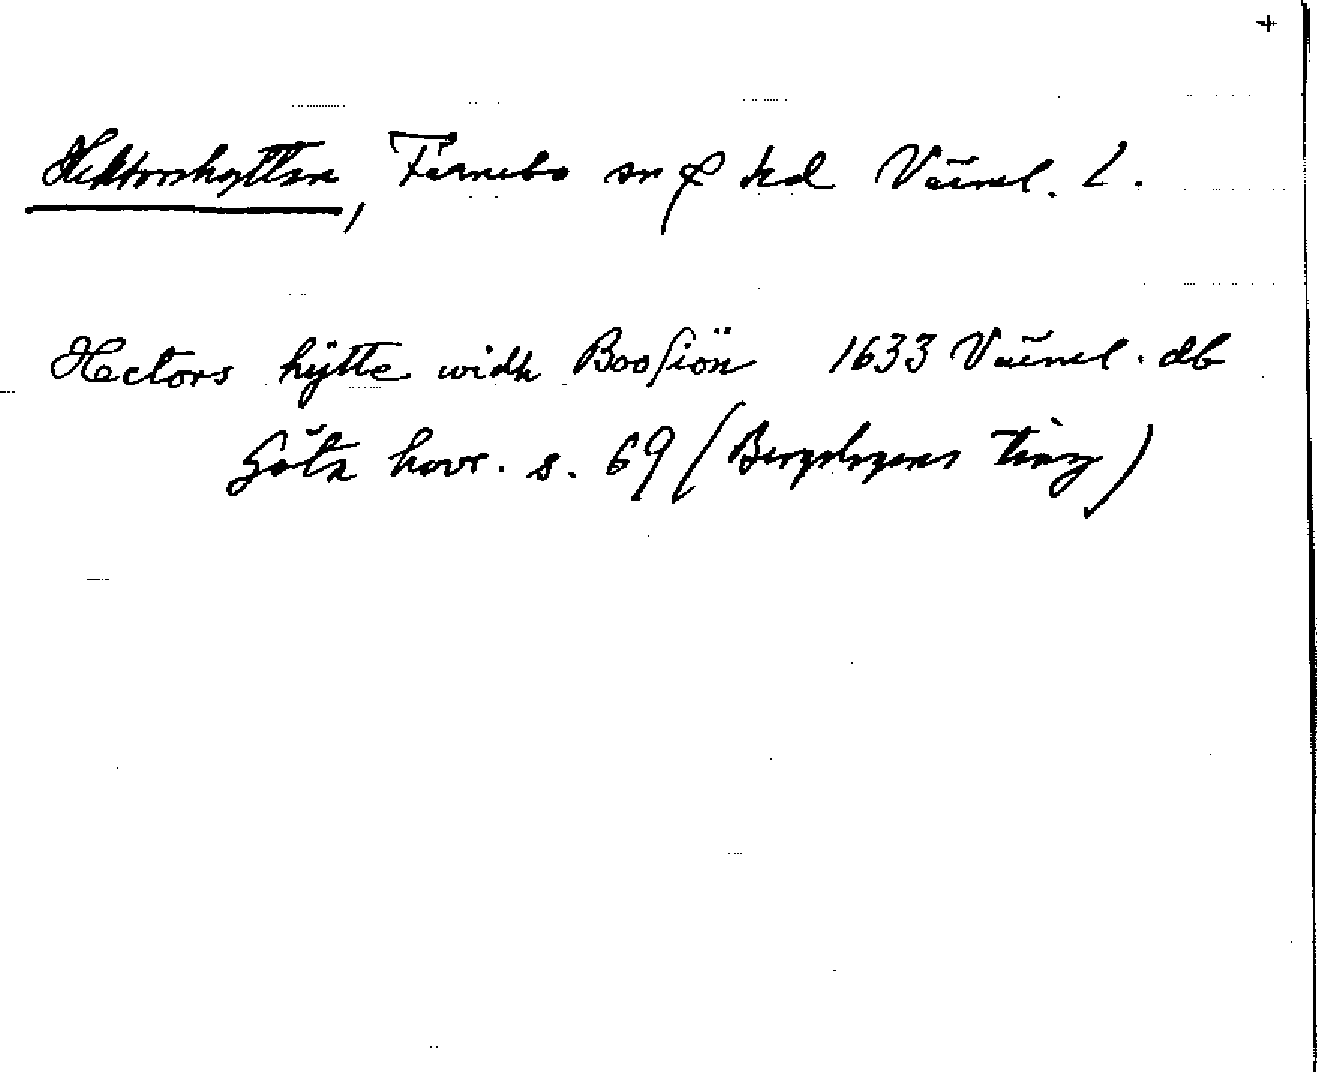 +
Hektorshyttan, Färnebo sn & hd Värml. L.
Hectors hÿtte widh Booſiön 1633 Värml. db
Göta hovr. s. 69 (Bergslagens Ting)